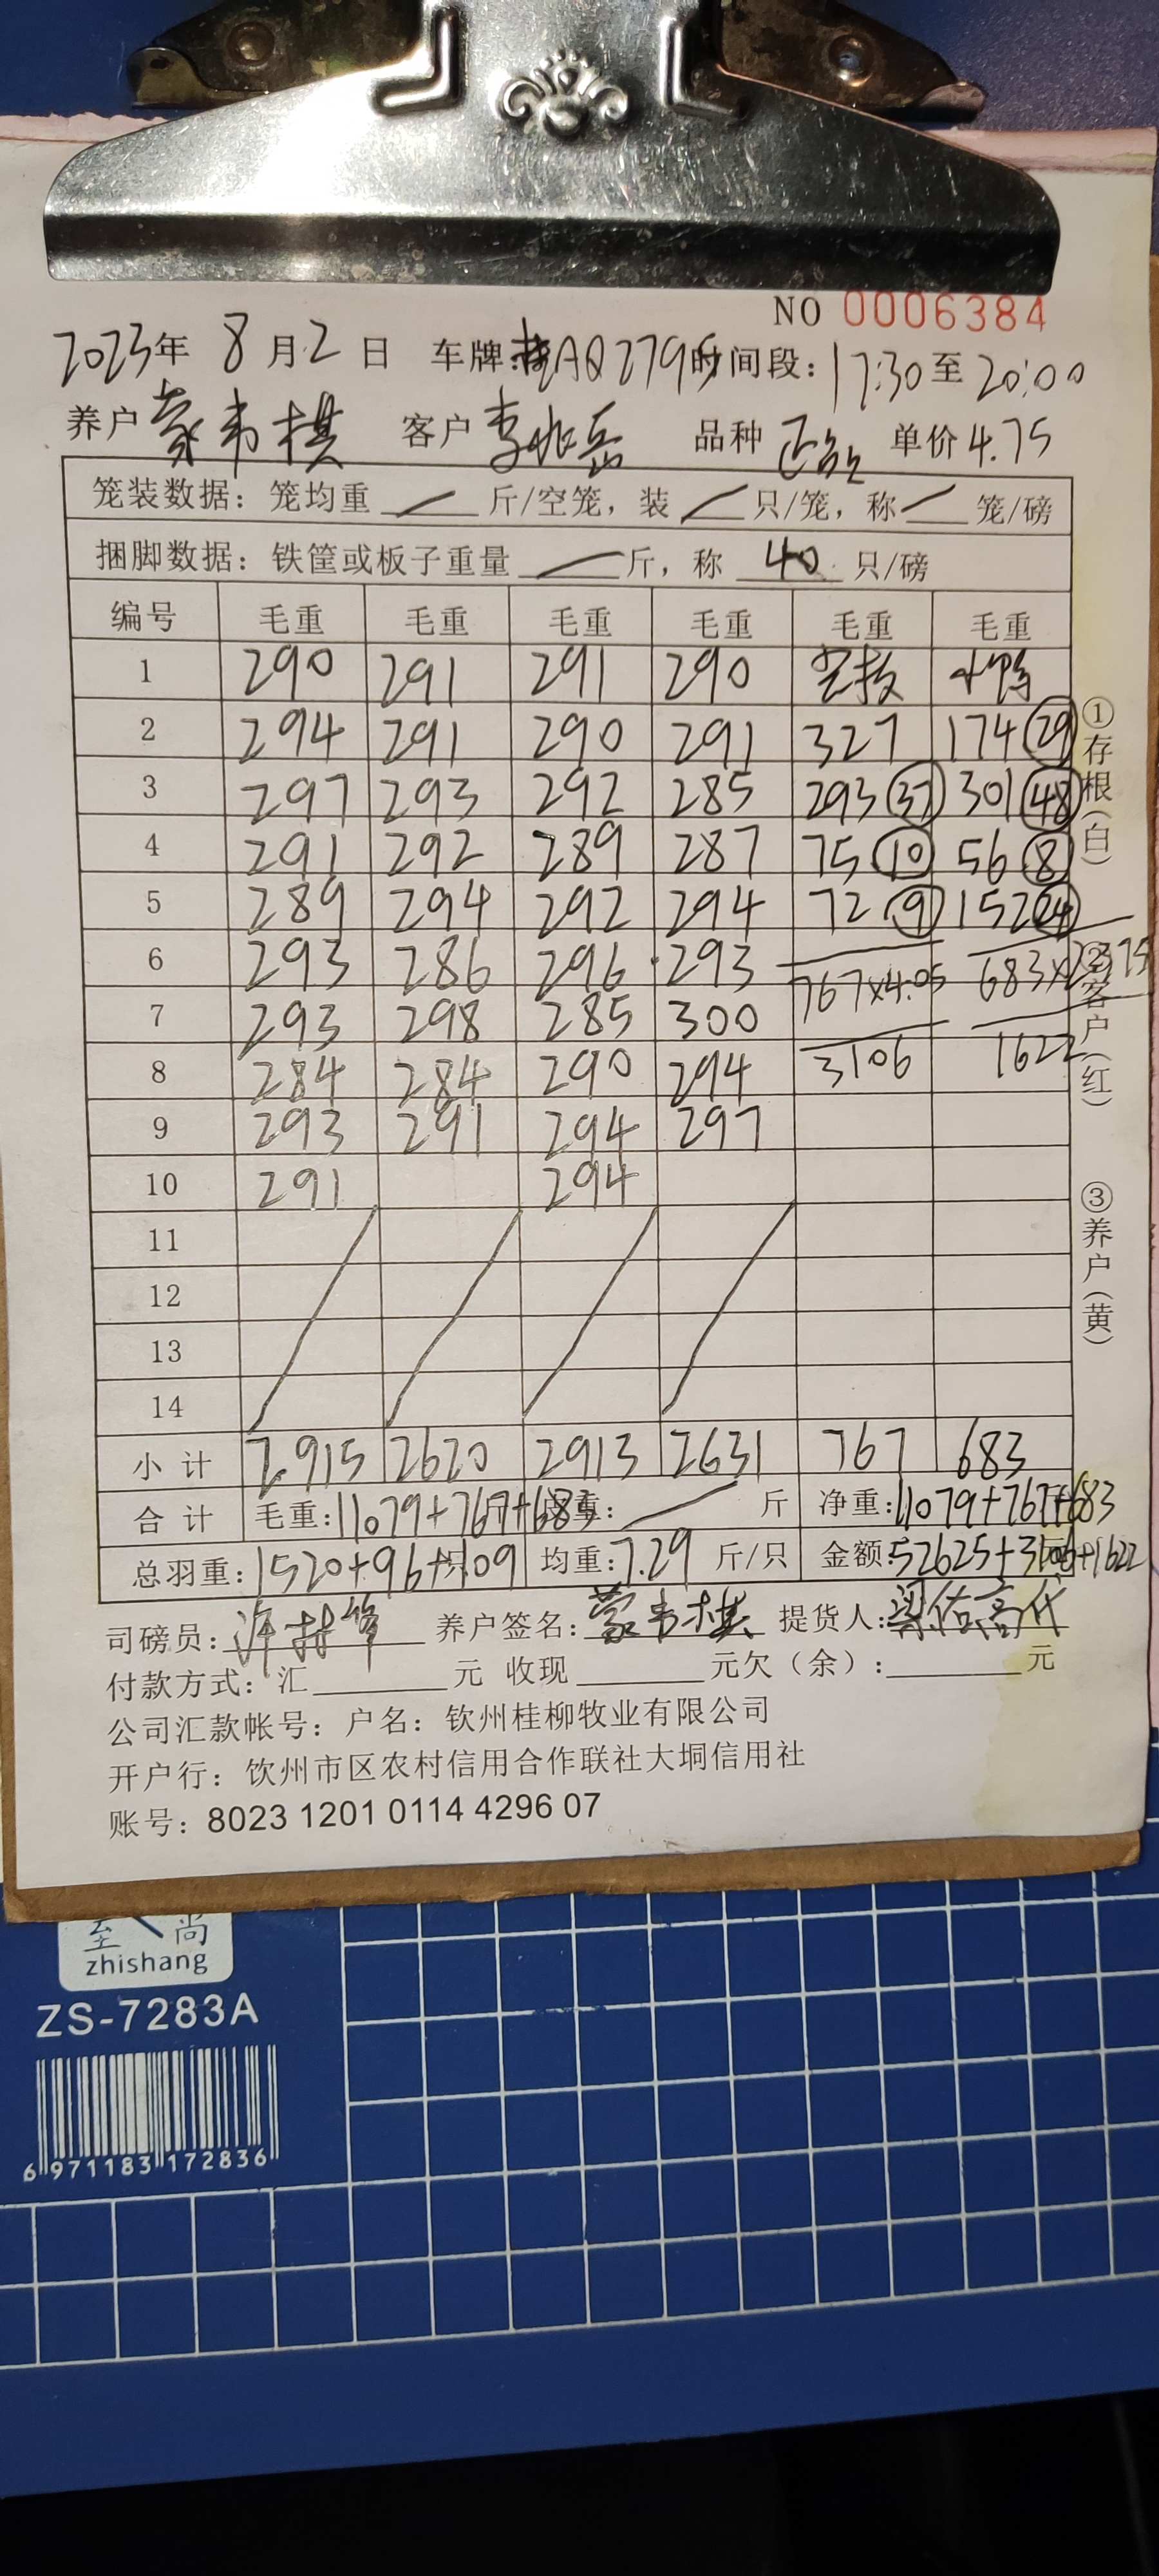 NO 0006384
2023年 8月2日 车牌:桂AQ2795 时间段:17:30至20:00
养户 蒙韦棋 客户 李兆岳 品种 正品 单价4.75
笼装数据: 笼均重 斤/空笼, 装 只/笼, 称 笼/磅
捆脚数据: 铁筐或板子重量 斤, 称 40 只/磅
编号 毛重 毛重 毛重 毛重 毛重 毛重
1 290 291 291 290 小鸭
2 294 291 290 291 327 174 29
3 297 293 292 285 293 37 301 48
4 291 292 289 287 75 10 56 8
5 289 294 292 294 72 9 152 24
6 293 286 296 293 767x4.05 683x2.375
7 293 298 285 300
8 284 284 290 294 3106 1622
9 293 291 294 297
10 291 294
11
12
13
14
小计 2915 2620 2913 2631 767 683
合计 毛重:11079+767+683 斤 净重:11079+767+683
总羽重:1520+96+109 均重:7.29 斤/只 金额:52625+3106+1622
司磅员: 养户签名:蒙韦棋 提货人:
付款方式: 汇 元 收现 元欠(余): 元
公司汇款帐号: 户名: 钦州桂柳牧业有限公司
开户行: 饮州市区农村信用合作联社大垌信用社
账号: 8023 1201 0114 4296 07
①存根(白)
②客户(红)
③养户(黄)
至尚
zhishang
ZS-7283A
6 971183 172836